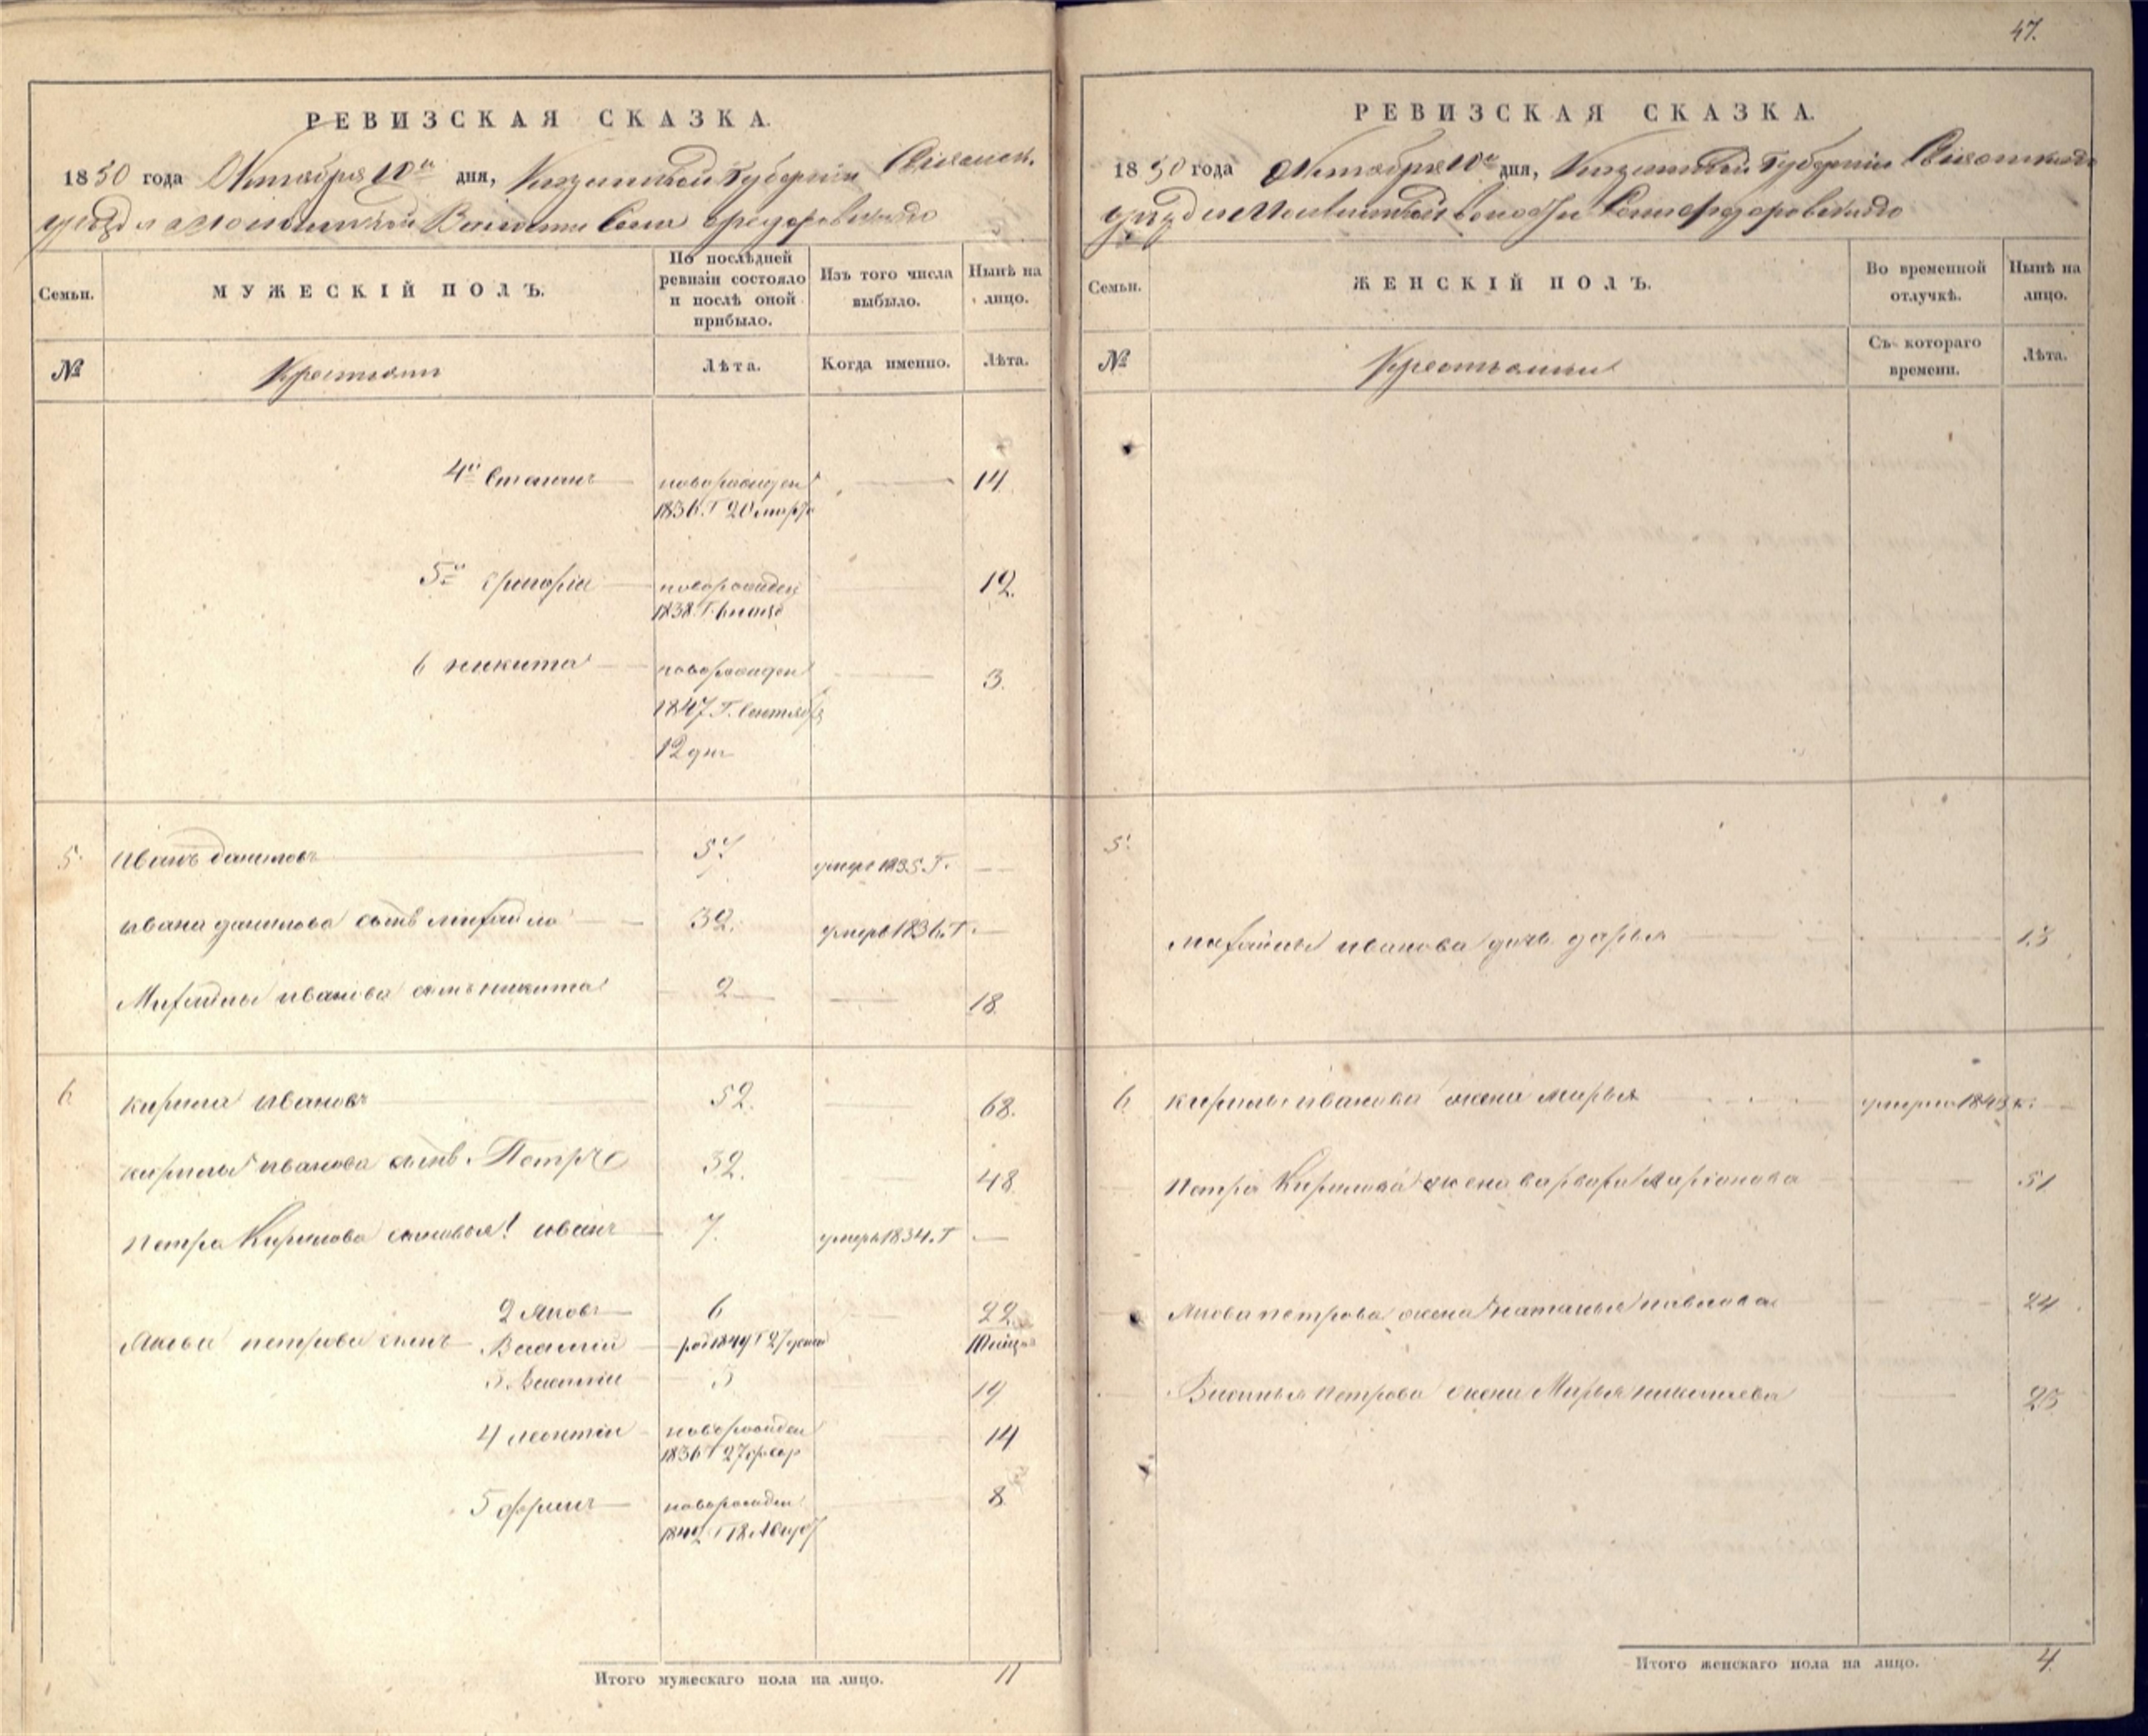 47.
РЕВИЗСКАЯ СКАЗКА.
1850 года Октября 10го дня, Казанской Губернии Свіяжск.
уезда Волости Села Федоровскаго
Семьи. МУЖЕСКІЙ ПОЛЪ. По послѣдней ревизіи состояло и послѣ оной прибыло. Изъ того числа выбыло. Нынѣ на лицо.
№ Крестьяне Лѣта. Когда именно. Лѣта.
4й Степанъ новорожден 14
1836.Г 20 марта
5й Григорій новорожден 12.
1838.Г.
6 никита новорожден 3.
1847 Г. Сентября
12 дня
5. Иванъ даниловъ 57 умеръ 1835.Г.
ивана данилова сынъ михайло 32. умеръ 1836.Г.
Михайлы иванова сынъ никита 2 18.
6 кирила ивановъ 52. 68.
кирилы иванова сынъ Петръ 32. 48.
Петра Кирилова сыновья: иванъ 7. умеръ 1834.Г
2 яковъ 6 22
Якова петрова сынъ Василій 1849 Г 27
3. Василій 3 19
4 леонтій новорожден 14
1836 Г 27 февр
5 новорожден 8.
1842 Г 18 Август
Итого мужескаго пола на лицо. 11
РЕВИЗСКАЯ СКАЗКА.
1850 года Октября 10го дня, Казанской Губерніи Свіяжскаго
уезда Волости Села Федоровскаго
Семьи. ЖЕНСКІЙ ПОЛЪ. Во временной отлучкѣ. Нынѣ на лицо.
№ Крестьянки Съ котораго времени. Лѣта.
5.
михайлы иванова дочь дарья 13
6. кирилы иванова жена марья умерла
Петра Кирилова жена варвара ларіонова 51
Якова петрова жена наталья павлова 24
Василья петрова жена Марья николаева 25
Итого женскаго пола на лицо. 4.